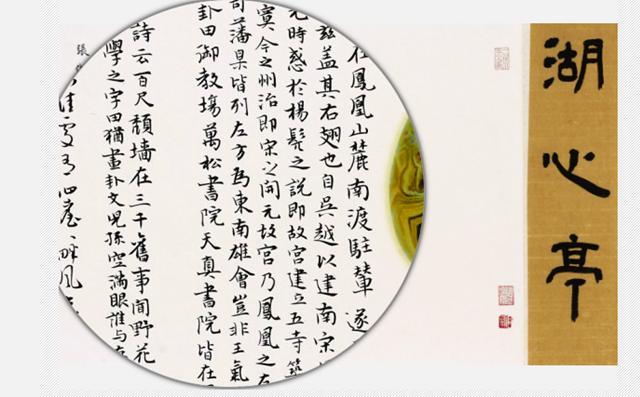 湖心亭
在鳳凰山麓南渡駐輦遂
茲蓋其右翅也自吳越以建南宋
元時惑於楊髡之說即故宮建立五寺築
寞今之州治即宋之開元故宮乃鳳凰之
司藩臬皆列左方為東南雄會豈非王氣
卦田御教場萬松書院天真書院皆在
詩云百尺頹墻在三千舊事聞野花
學之字田猶畫卦文兒孫空滿眼誰與
張